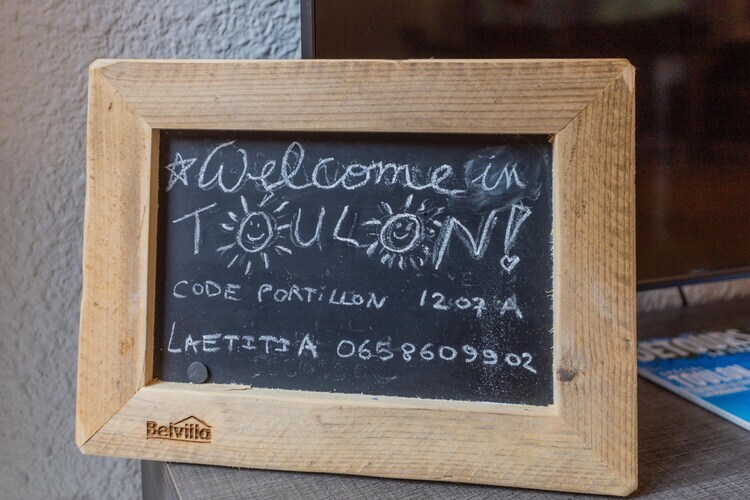 Welcome in
TOULON!
CODE PORTILLON 1207A
LAETITIA 0658609902
Belvilla
DETOURS
TOULON